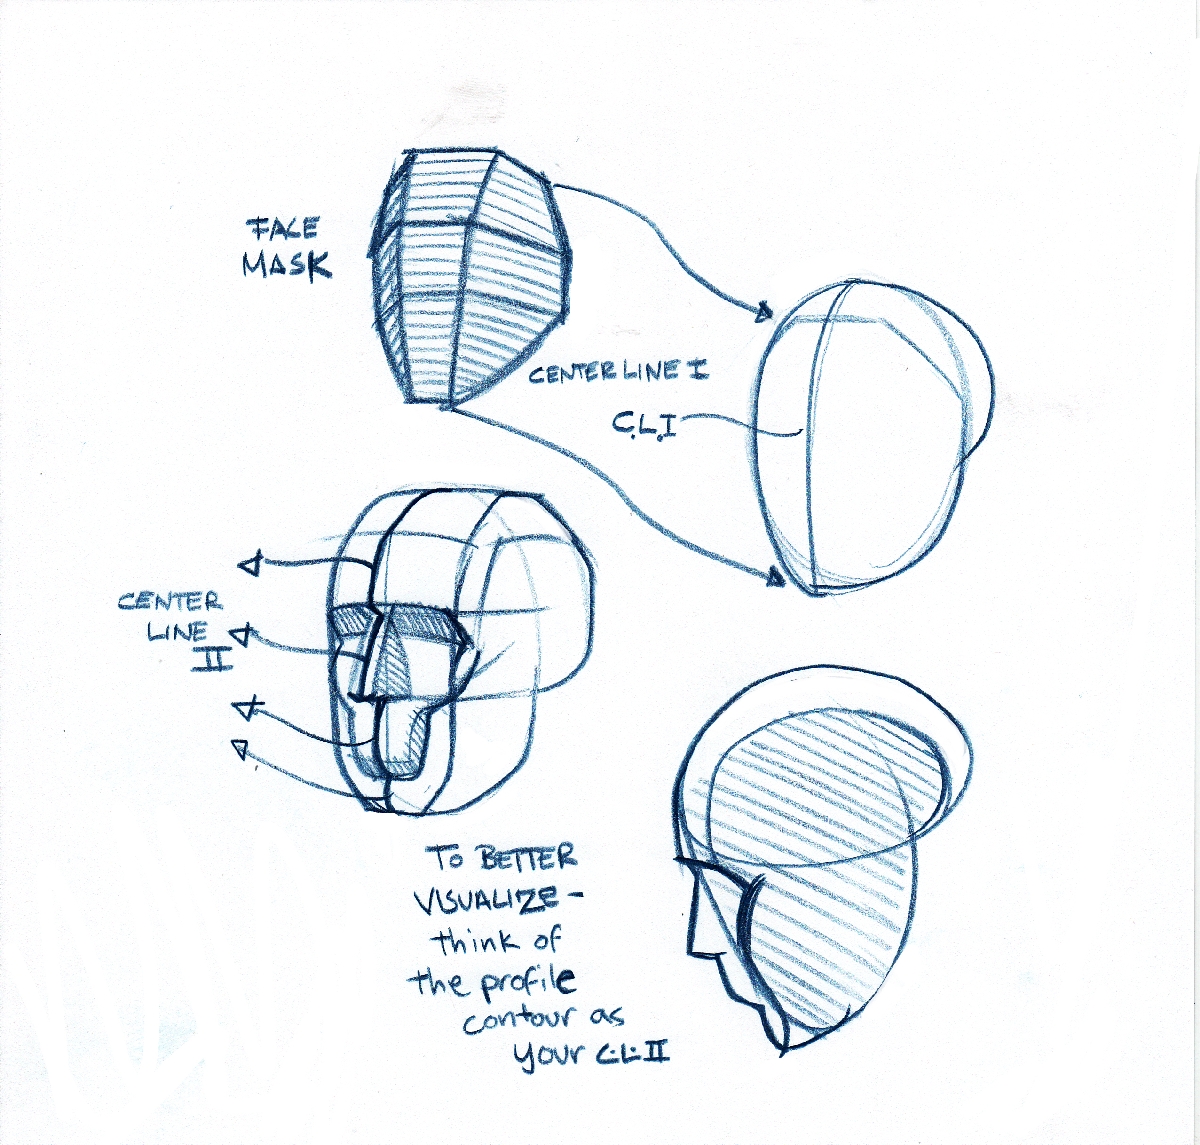 FACE
MASK
CENTER LINE I
C.L.I
CENTER
LINE
II
TO BETTER
VISUALIZE -
think of
the profile
contour as
your C.L. II